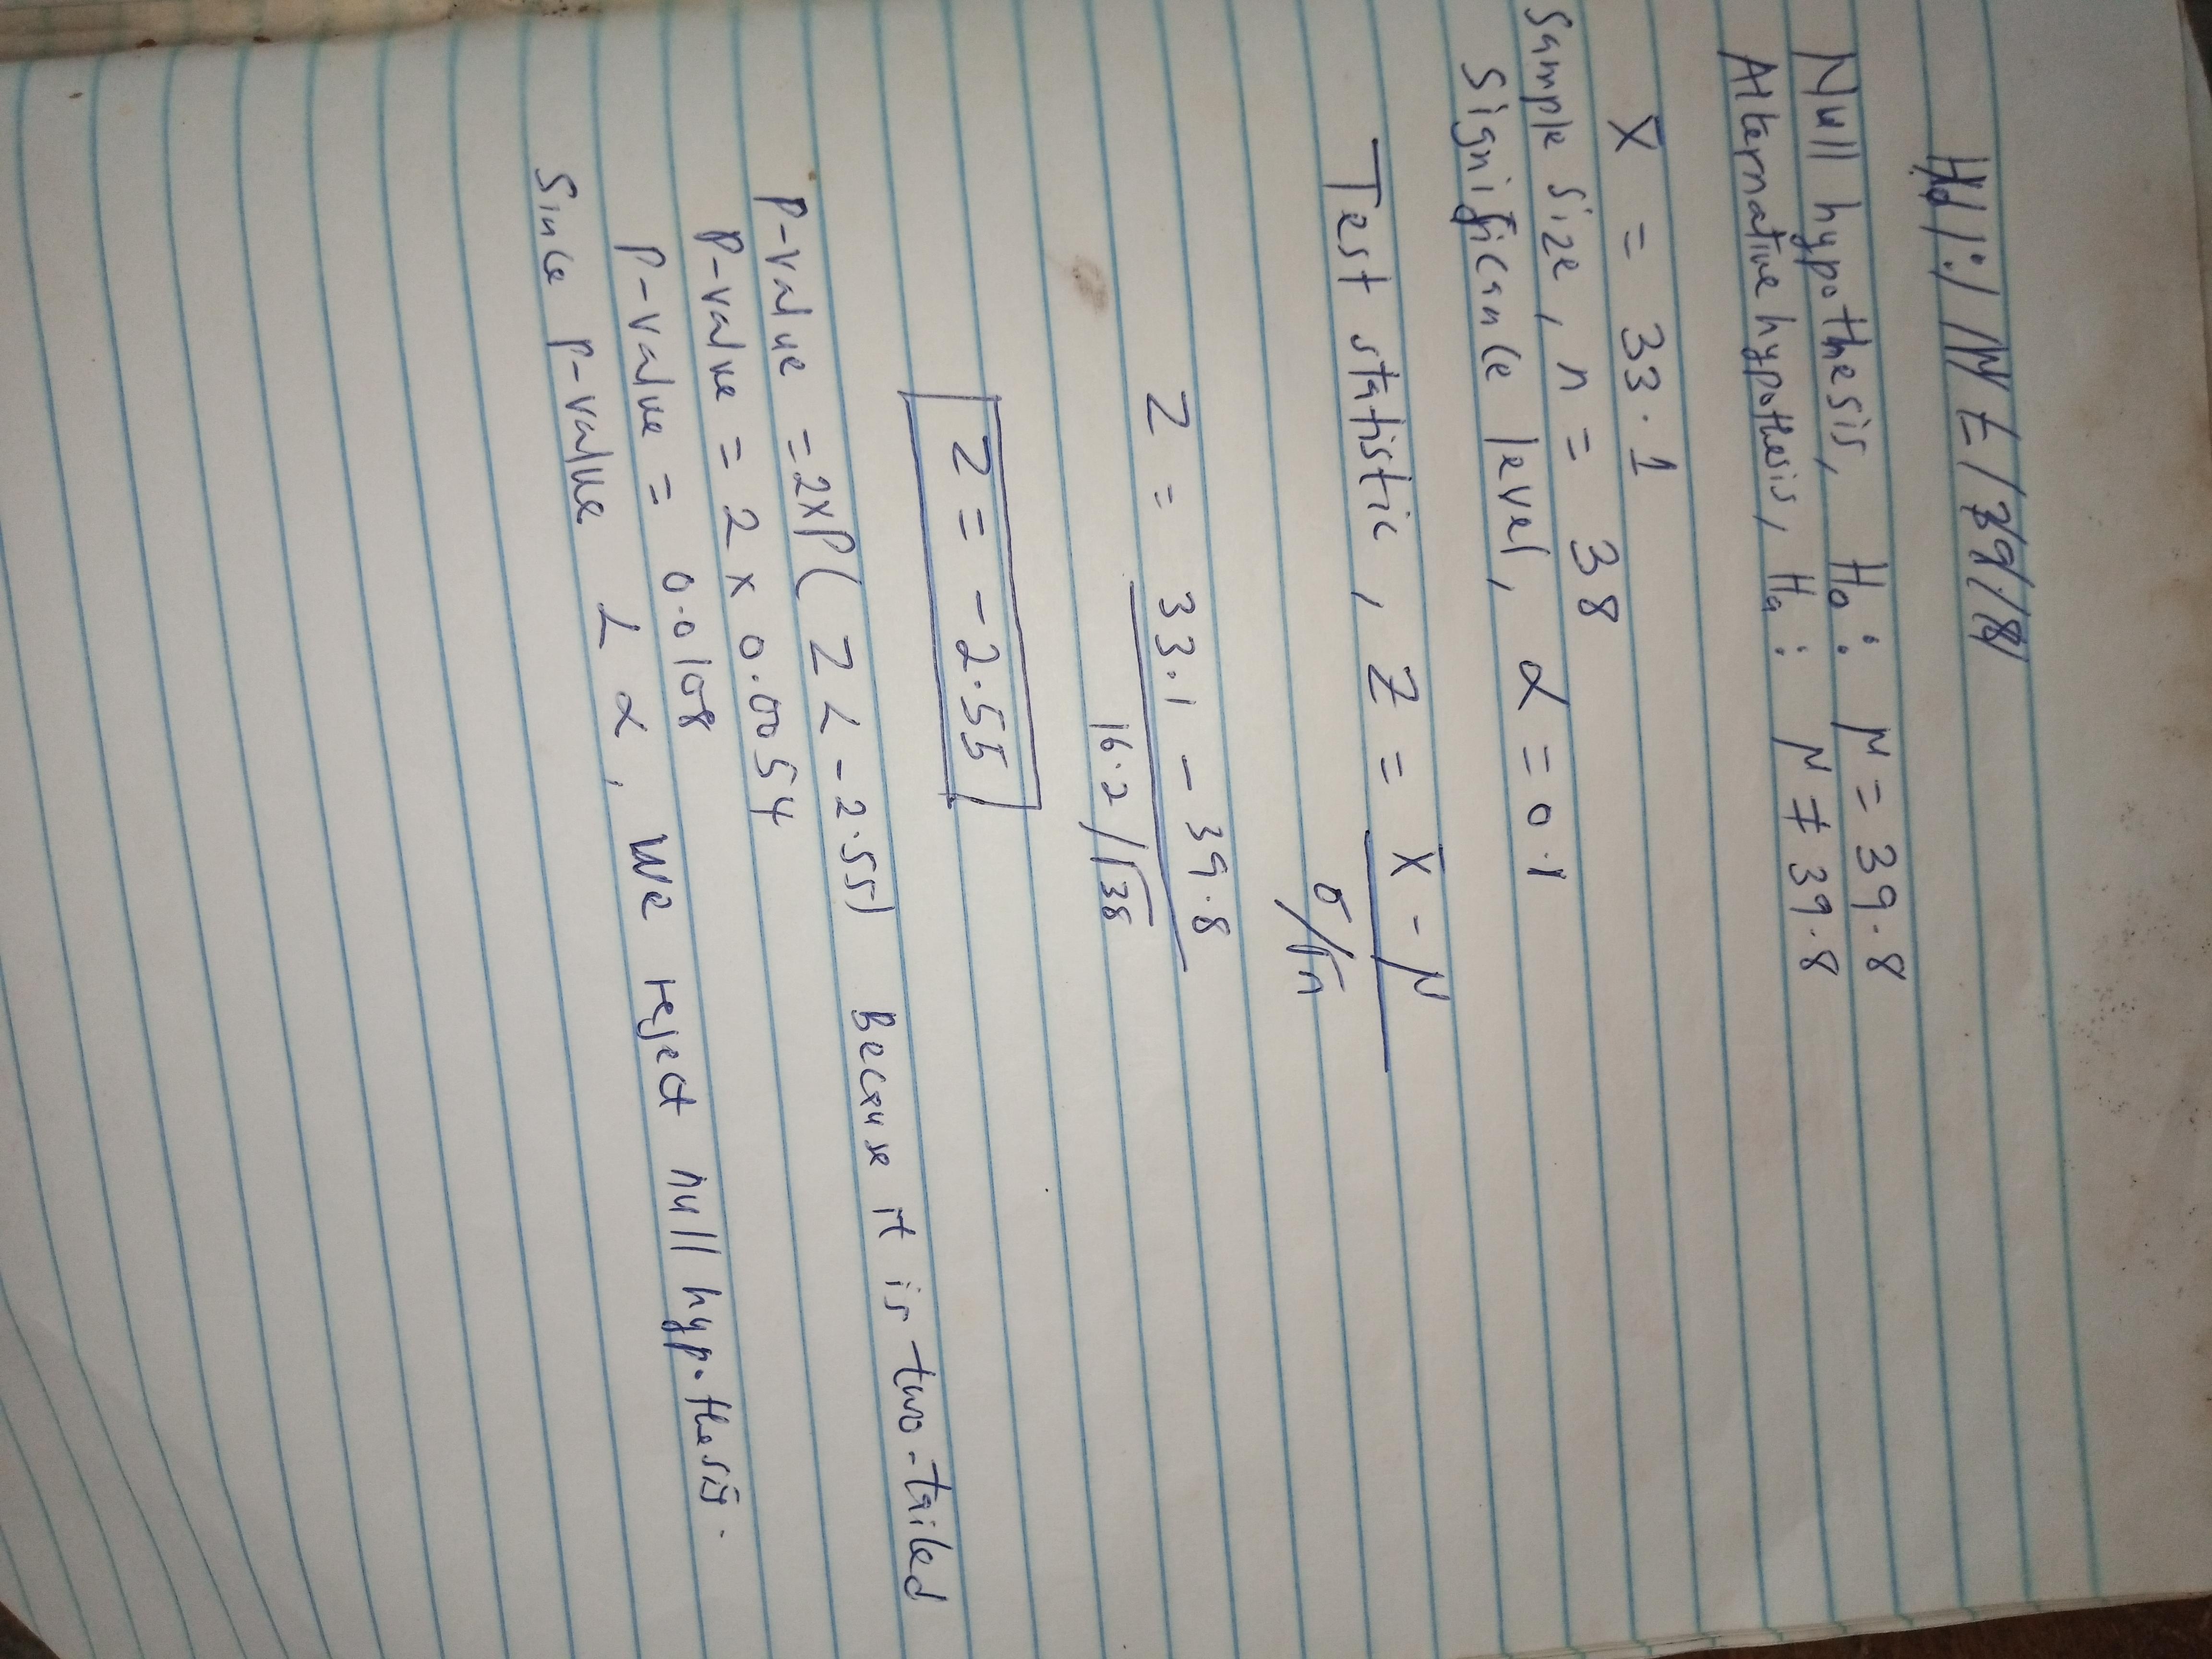 Null hypothesis, H0: μ = 39.8
Alternative hypothesis, Ha: μ ≠ 39.8
X̄ = 33.1
Sample size, n = 38
Significance level, α = 0.1
Test statistic, Z = X̄ - μ
σ/√n
Z = 33.1 - 39.8
16.2/√38
Z = -2.55
P-value = 2xP(Z < -2.55) Because it is two-tailed
P-value = 2 x 0.0054
P-value = 0.0108
Since P-value < α, we reject null hypothesis.